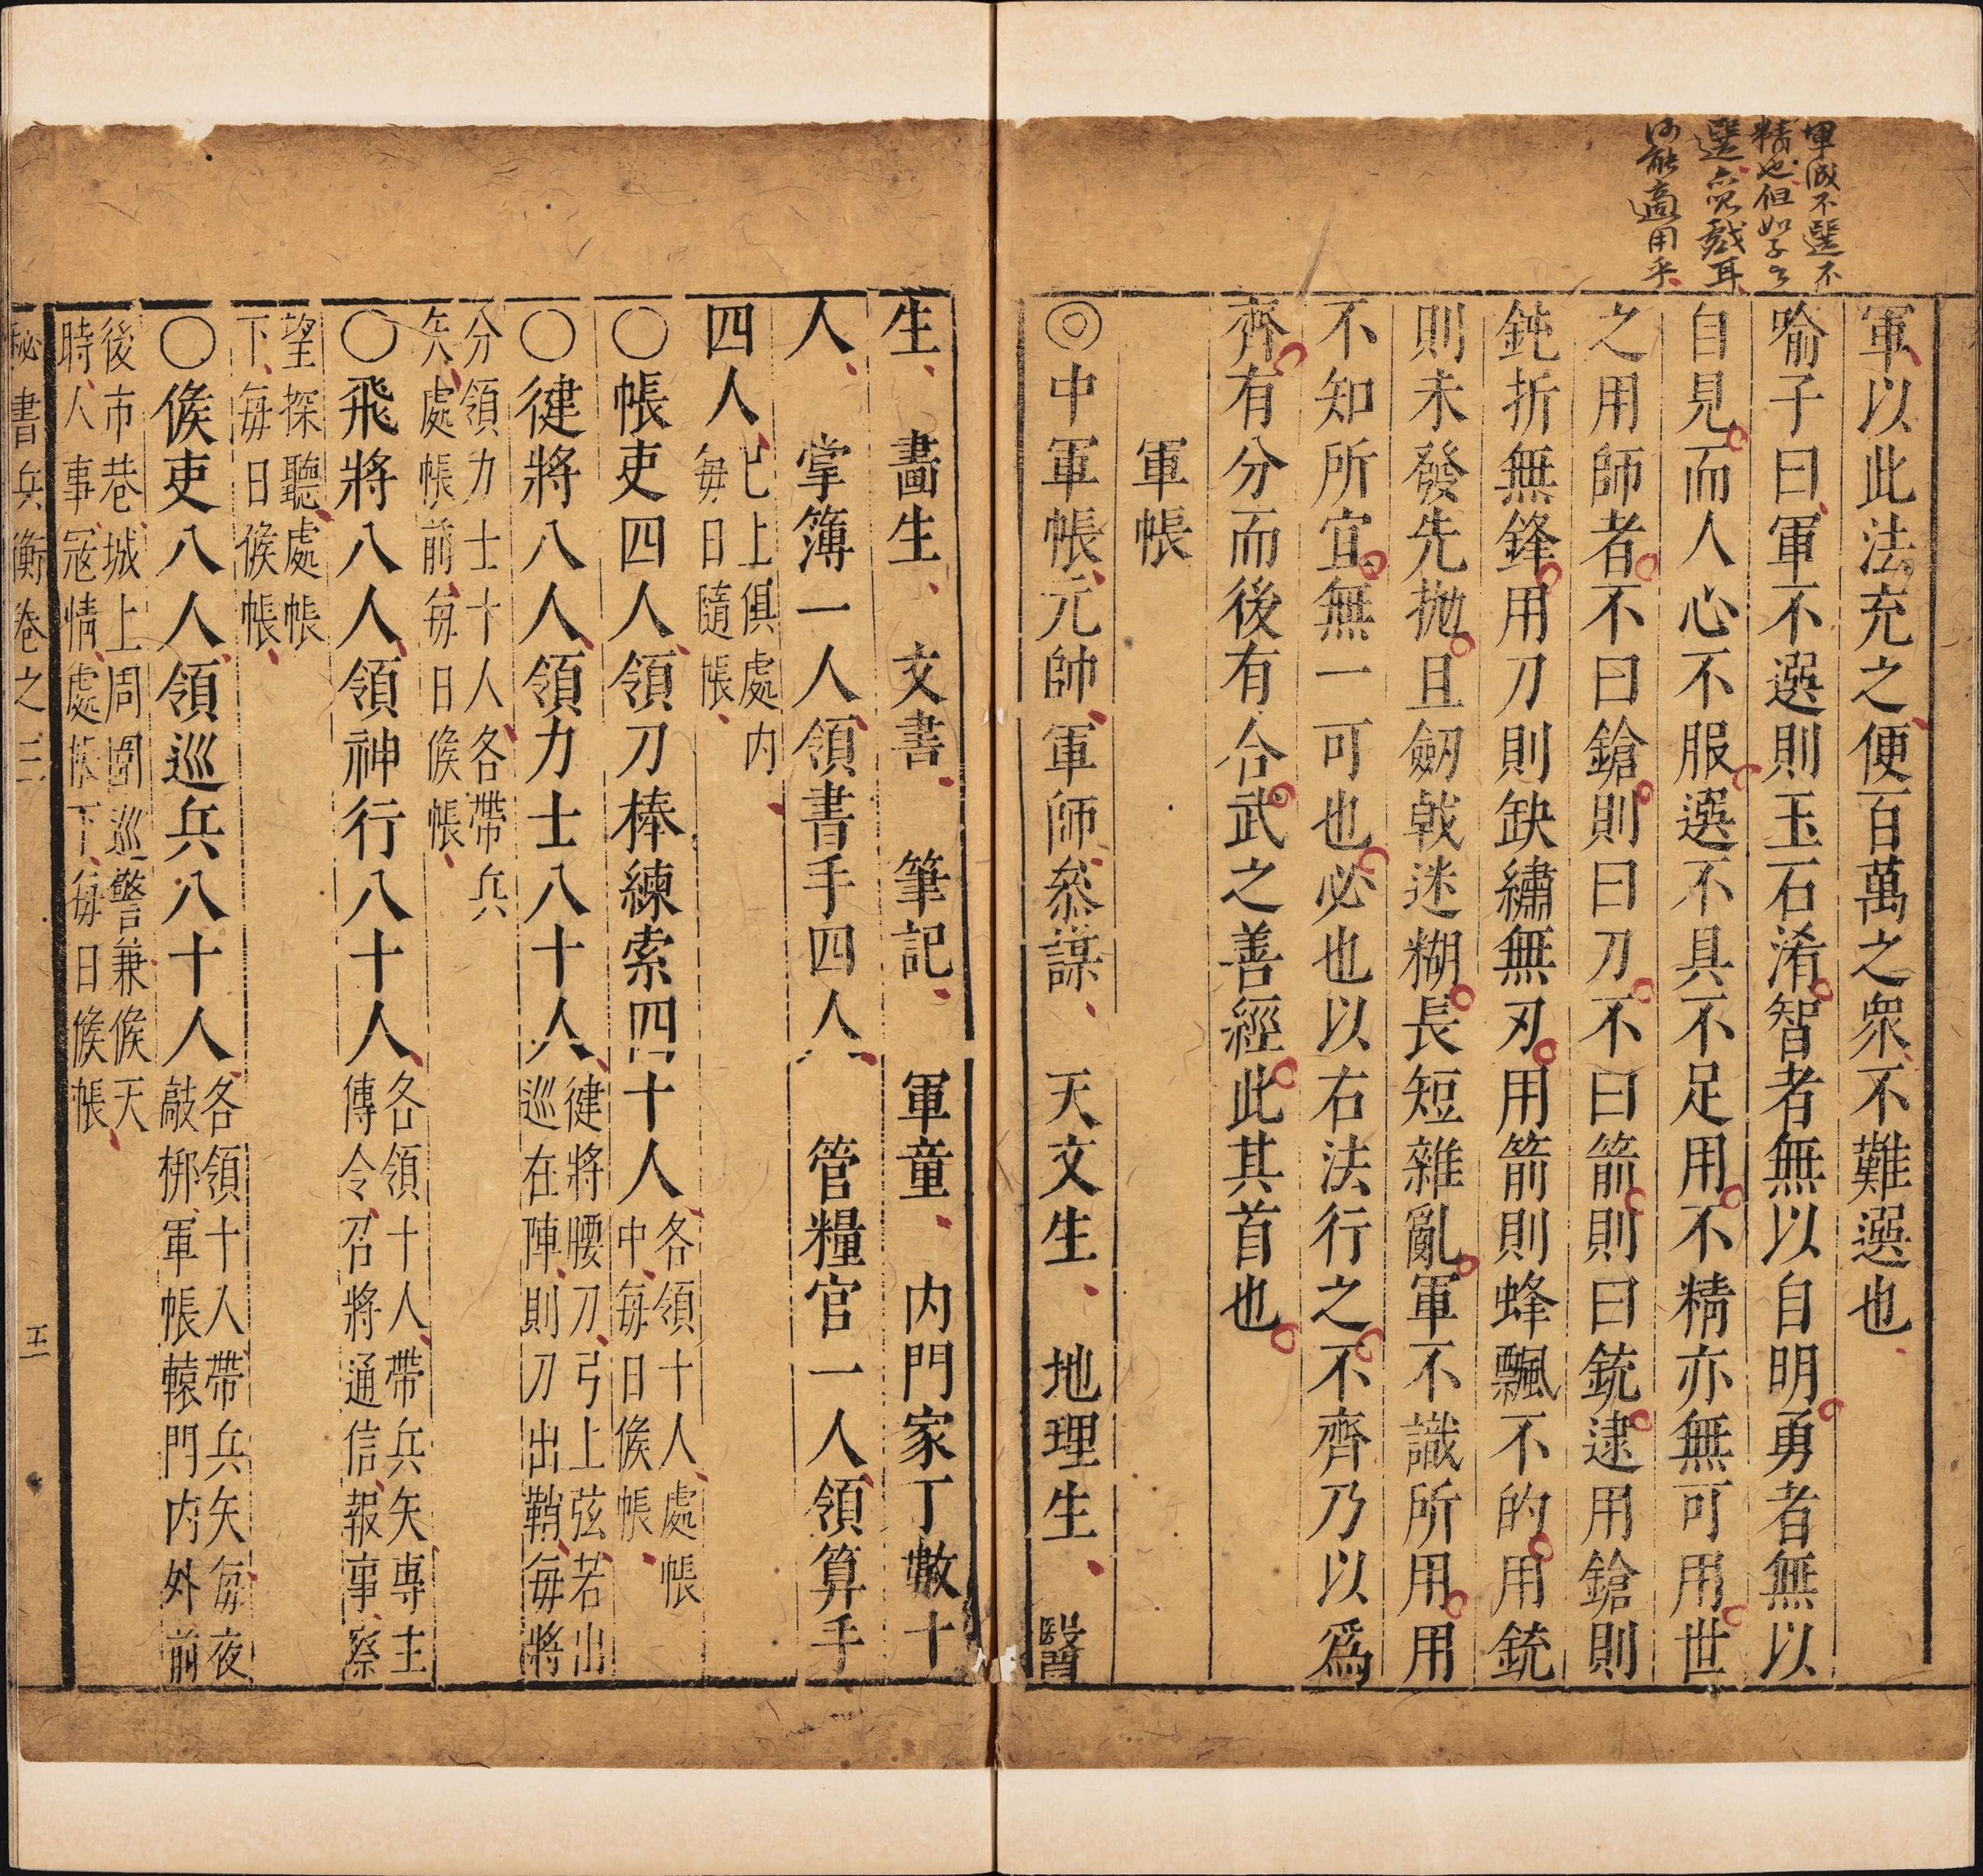 軍誠不選不
精也但如子言
選亦兒戲耳
何能適用乎
軍以此法充之便百萬之眾不難選也
喻子曰軍不選則玉石淆智者無以自明勇者無以
自見而人心不服選不具不足用不精亦無可用世
之用師者不曰鎗則曰刀不曰箭則曰銃逮用鎗則
鈍折無鋒用刀則缺繡無刃用箭則蜂飄不的用銃
則未發先拋且劒戟迷糊長短雜亂軍不識所用用
不知所宜無一可也必也以右法行之不齊乃以爲
齊有分而後有合武之善經此其首也
軍帳
◎中軍帳元帥軍師叅謀 天文生 地理生 醫
生 畵生 文書 筆記 軍童 内門家丁數十
人 掌簿一人領書手四人 管糧官一人領算手
四人
已上俱處内
每日隨帳
○帳吏四人領刀棒練索四十人
各領十人處帳
中每日候帳
○健將八人領力士八十人
健將腰刀弓上弦若出
巡在陣則刀出鞘每將
分領力士十人各帶兵
矢處帳前每日候帳
○飛將八人領神行八十人
各領十人帶兵矢專主
傳令召將通信報事察
望探聽處帳
下每日候帳
○候吏八人領巡兵八十人
各領十人帶兵矢每夜
敲梆軍帳轅門内外前
後市巷城上周圍巡警兼候天
時人事冦情處帳下每日候帳
秘書兵衡卷之三 五